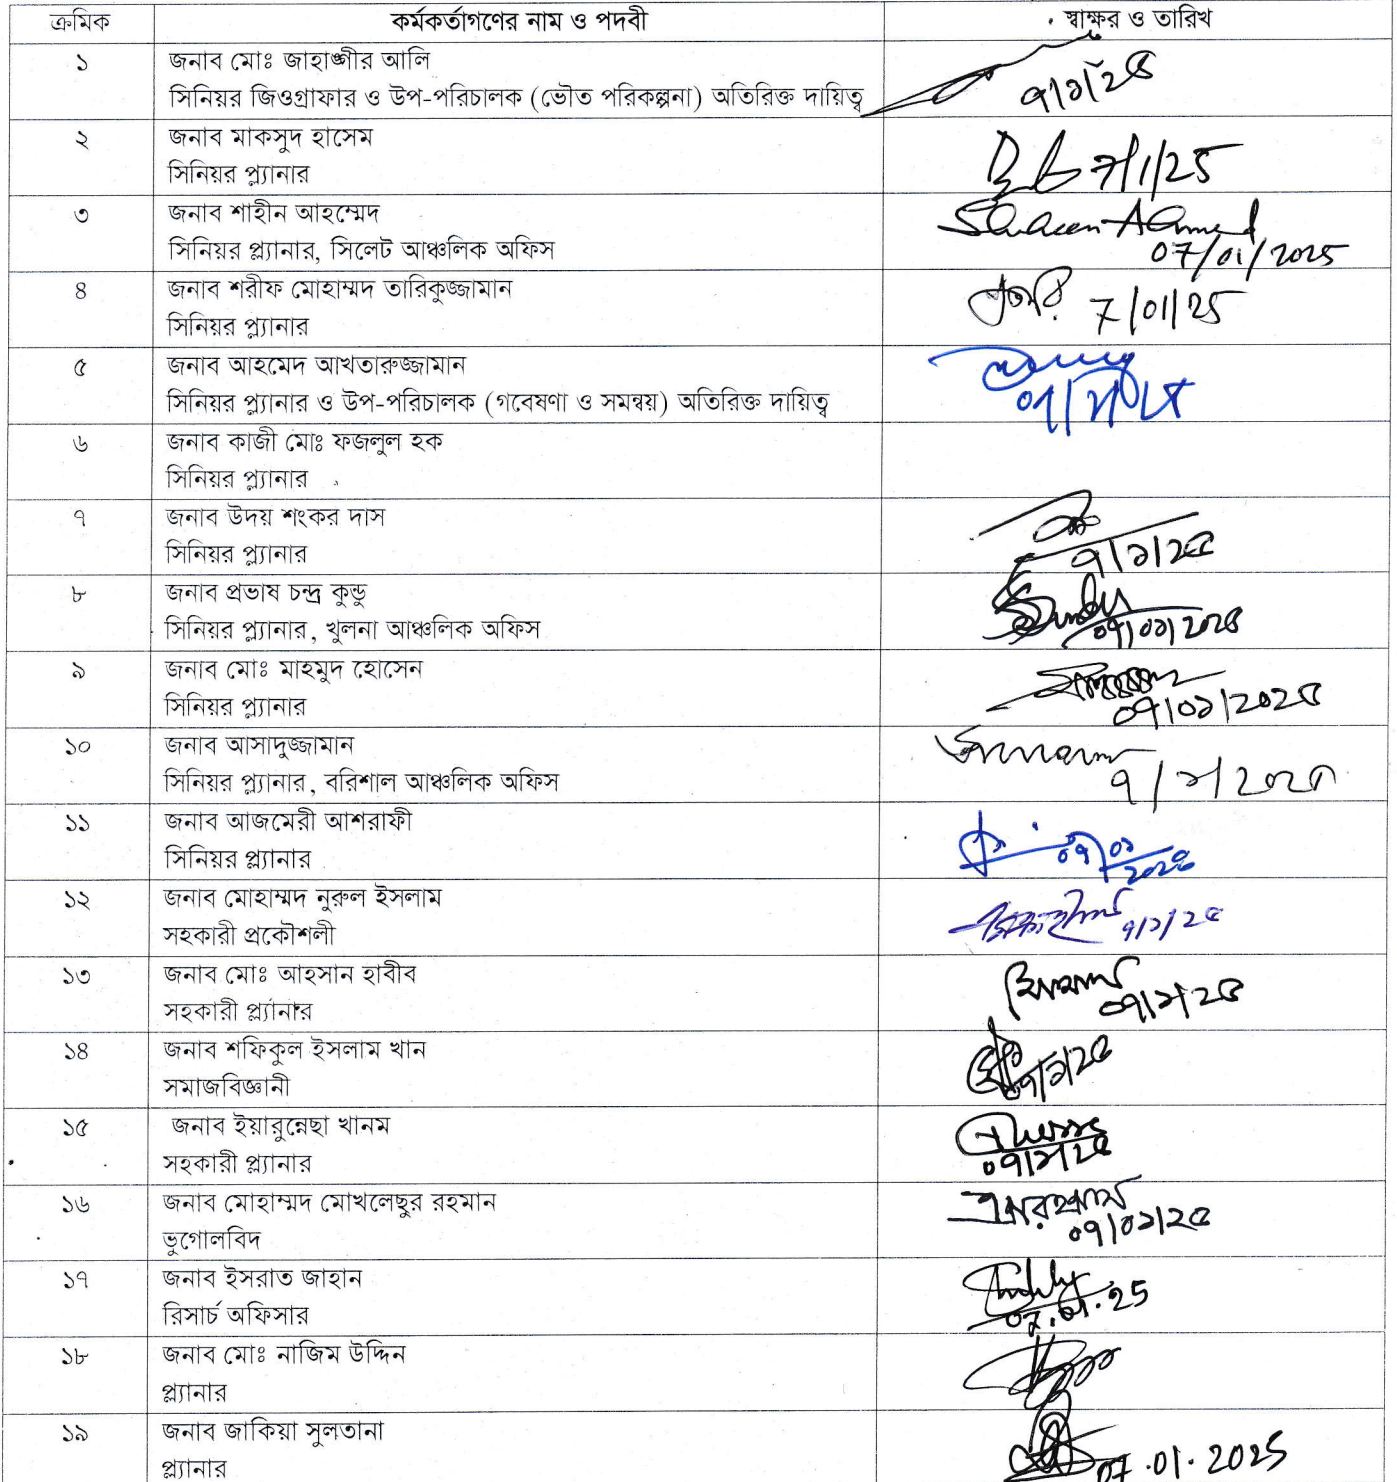 ক্রমিক কর্মকর্তাগণের নাম ও পদবী স্বাক্ষর ও তারিখ
১ জনাব মোঃ জাহাঙ্গীর আলি
সিনিয়র জিওগ্রাফার ও উপ-পরিচালক (ভৌত পরিকল্পনা) অতিরিক্ত দায়িত্ব ৭/১/২৫
২ জনাব মাকসুদ হাসেম
সিনিয়র প্ল্যানার 7/1/25
৩ জনাব শাহীন আহম্মেদ Shaheen Ahmed
সিনিয়র প্ল্যানার, সিলেট আঞ্চলিক অফিস 07/01/2025
৪ জনাব শরীফ মোহাম্মদ তারিকুজ্জামান
সিনিয়র প্ল্যানার 7/01/25
৫ জনাব আহমেদ আখতারুজ্জামান
সিনিয়র প্ল্যানার ও উপ-পরিচালক (গবেষণা ও সমন্বয়) অতিরিক্ত দায়িত্ব
৬ জনাব কাজী মোঃ ফজলুল হক
সিনিয়র প্ল্যানার
৭ জনাব উদয় শংকর দাস
সিনিয়র প্ল্যানার ৭/১/২৫
৮ জনাব প্রভাষ চন্দ্র কুন্ডু
সিনিয়র প্ল্যানার, খুলনা আঞ্চলিক অফিস ০৭/০১/২০২৫
৯ জনাব মোঃ মাহমুদ হোসেন
সিনিয়র প্ল্যানার ০৭/০১/২০২৫
১০ জনাব আসাদুজ্জামান
সিনিয়র প্ল্যানার, বরিশাল আঞ্চলিক অফিস ৭/১/২০২৫
১১ জনাব আজমেরী আশরাফী
সিনিয়র প্ল্যানার ০৭/০১/২০২৫
১২ জনাব মোহাম্মদ নুরুল ইসলাম
সহকারী প্রকৌশলী ৭/১/২৫
১৩ জনাব মোঃ আহসান হাবীব
সহকারী প্ল্যানার ০৭/১/২৫
১৪ জনাব শফিকুল ইসলাম খান
সমাজবিজ্ঞানী ০৭/১/২৫
১৫ জনাব ইয়ারুন্নেছা খানম
সহকারী প্ল্যানার ০৭/১/২৫
১৬ জনাব মোহাম্মদ মোখলেছুর রহমান
ভুগোলবিদ ০৭/০১/২৫
১৭ জনাব ইসরাত জাহান
রিসার্চ অফিসার 07.01.25
১৮ জনাব মোঃ নাজিম উদ্দিন
প্ল্যানার
১৯ জনাব জাকিয়া সুলতানা
প্ল্যানার 07.01.2025